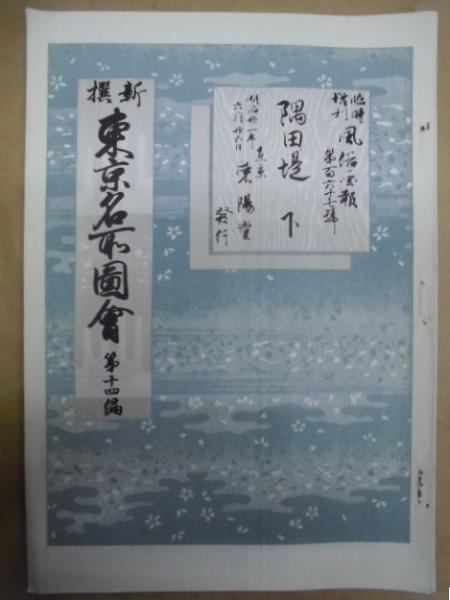 臨時
増刊
風俗画報
第百六十七號
隅田堤 下
明治卅一年
六月廿五日
東京
東陽堂
發行
新撰
東京名所圖會
第十四編